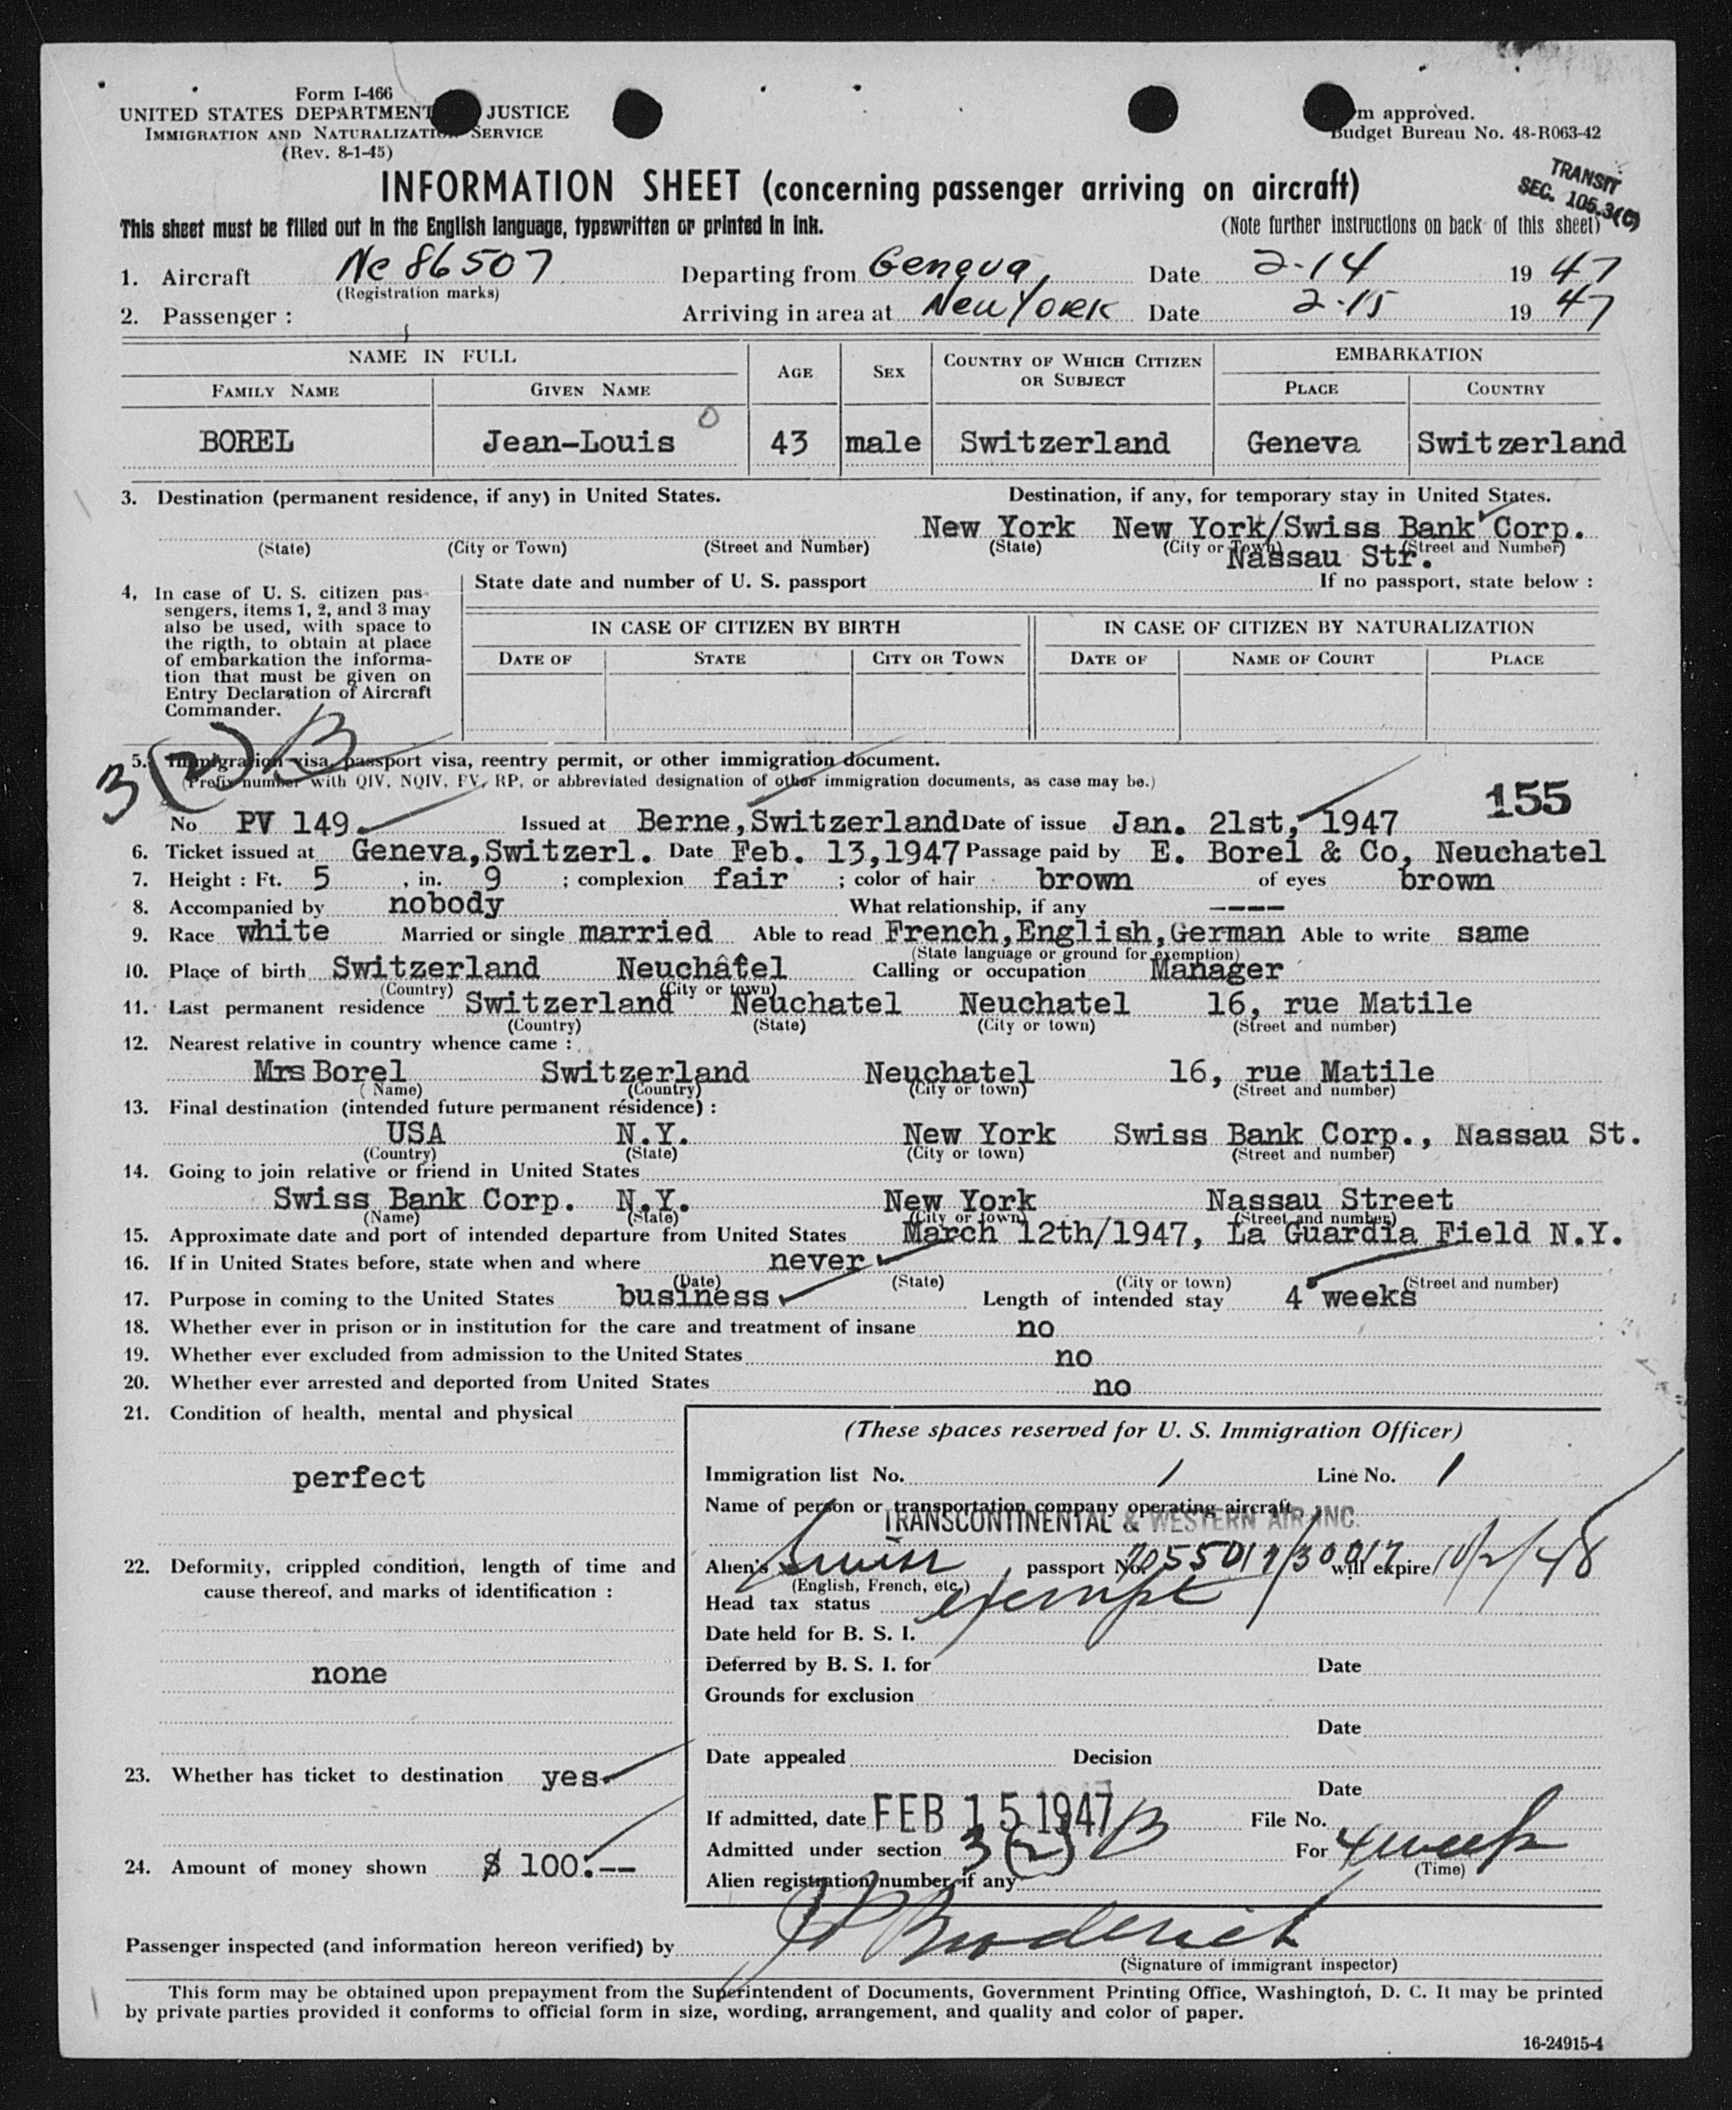 Form I-466
UNITED STATES DEPARTMENT JUSTICE
IMMIGRATION AND NATURALIZATION SERVICE
(Rev. 8-1-45)
m approved.
Budget Bureau No. 48-R063-42
TRANSIT
SEC. 105.3(C)
INFORMATION SHEET (concerning passenger arriving on aircraft)
This sheet must be filled out in the English language, typewritten or printed in ink.
(Note further instructions on back of this sheet)
1. Aircraft Nc 86507 Departing from Geneva, Date 2-14 19 47
(Registration marks)
2. Passenger : Arriving in area at New York Date 2-15 19 47
NAME IN FULL AGE SEX COUNTRY OF WHICH CITIZEN OR SUBJECT EMBARKATION
FAMILY NAME GIVEN NAME PLACE COUNTRY
BOREL Jean-Louis 0 43 male Switzerland Geneva Switzerland
3. Destination (permanent residence, if any) in United States. Destination, if any, for temporary stay in United States.
New York New York/Swiss Bank Corp.
(State) (City or Town) (Street and Number) (State) (City or Town) (Street and Number)
Nassau Str.
4, In case of U. S. citizen pas-
sengers, items 1, 2, and 3 may
also be used, with space to
the rigth, to obtain at place
of embarkation the informa-
tion that must be given on
Entry Declaration of Aircraft
Commander.
State date and number of U. S. passport If no passport, state below :
IN CASE OF CITIZEN BY BIRTH IN CASE OF CITIZEN BY NATURALIZATION
DATE OF STATE CITY OR TOWN DATE OF NAME OF COURT PLACE
3 (2) B
5. Immigration visa, passport visa, reentry permit, or other immigration document.
(Prefix number with QIV, NQIV, PV, RP, or abbreviated designation of other immigration documents, as case may be.)
155
No PV 149. Issued at Berne,Switzerland Date of issue Jan. 21st, 1947
6. Ticket issued at Geneva,Switzerl. Date Feb. 13,1947 Passage paid by E. Borel & Co, Neuchatel
7. Height : Ft. 5 , in. 9 ; complexion fair ; color of hair brown of eyes brown
8. Accompanied by nobody What relationship, if any ----
9. Race white Married or single married Able to read French,English,German Able to write same
(State language or ground for exemption)
10. Place of birth Switzerland Neuchâtel Calling or occupation Manager
(Country) (City or town)
11. Last permanent residence Switzerland Neuchatel Neuchatel 16, rue Matile
(Country) (State) (City or town) (Street and number)
12. Nearest relative in country whence came :
Mrs Borel Switzerland Neuchatel 16, rue Matile
(Name) (Country) (City or town) (Street and number)
13. Final destination (intended future permanent résidence) :
USA N.Y. New York Swiss Bank Corp., Nassau St.
(Country) (State) (City or town) (Street and number)
14. Going to join relative or friend in United States
Swiss Bank Corp. N.Y. New York Nassau Street
(Name) (State) (City or town) (Street and number)
15. Approximate date and port of intended departure from United States March 12th/1947, La Guardia Field N.Y.
16. If in United States before, state when and where never
(Date) (State) (City or town) (Street and number)
17. Purpose in coming to the United States business Length of intended stay 4 weeks
18. Whether ever in prison or in institution for the care and treatment of insane no
19. Whether ever excluded from admission to the United States no
20. Whether ever arrested and deported from United States no
21. Condition of health, mental and physical
perfect
22. Deformity, crippled condition, length of time and
cause thereof, and marks of identification :
none
23. Whether has ticket to destination yes
24. Amount of money shown $ 100.--
(These spaces reserved for U. S. Immigration Officer)
Immigration list No. 1 Line No. 1
Name of person or transportation company operating aircraft
TRANSCONTINENTAL & WESTERN AIR INC.
Alien's Swiss passport No. will expire 10/2/48
(English, French, etc.)
Head tax status exempt
Date held for B. S. I.
Deferred by B. S. I. for Date
Grounds for exclusion
Date
Date appealed Decision
Date
If admitted, date FEB 15 1947 File No.
Admitted under section 3(2) B For 4 weeks
(Time)
Alien registration number, if any
Passenger inspected (and information hereon verified) by Broderick
(Signature of immigrant inspector)
This form may be obtained upon prepayment from the Superintendent of Documents, Government Printing Office, Washington, D. C. It may be printed
by private parties provided it conforms to official form in size, wording, arrangement, and quality and color of paper.
16-24915-4